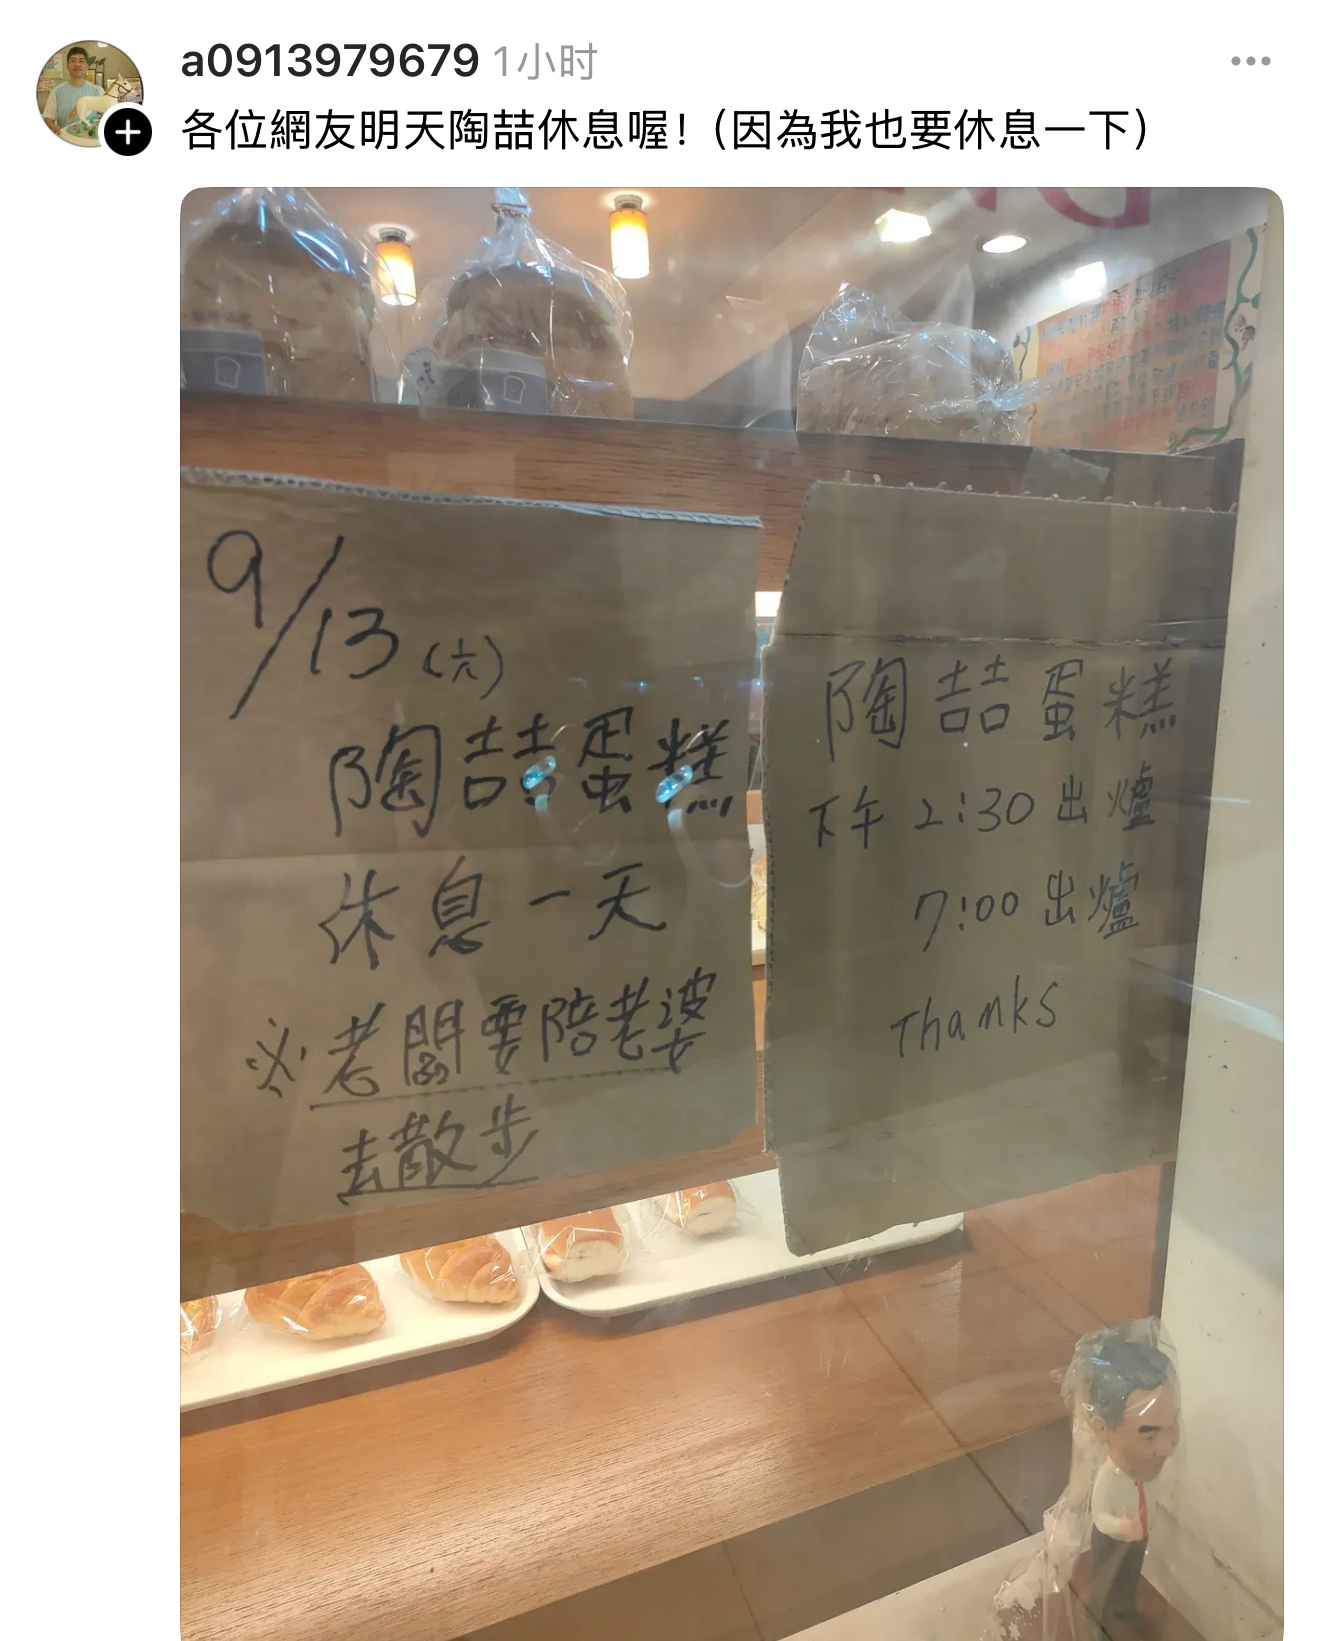 a0913979679 1小时
各位網友明天陶喆休息喔！（因為我也要休息一下）
9/13（六）
陶喆蛋糕
休息一天
※老闆要陪老婆
去散步
陶喆蛋糕
下午2:30出爐
7:00出爐
Thanks